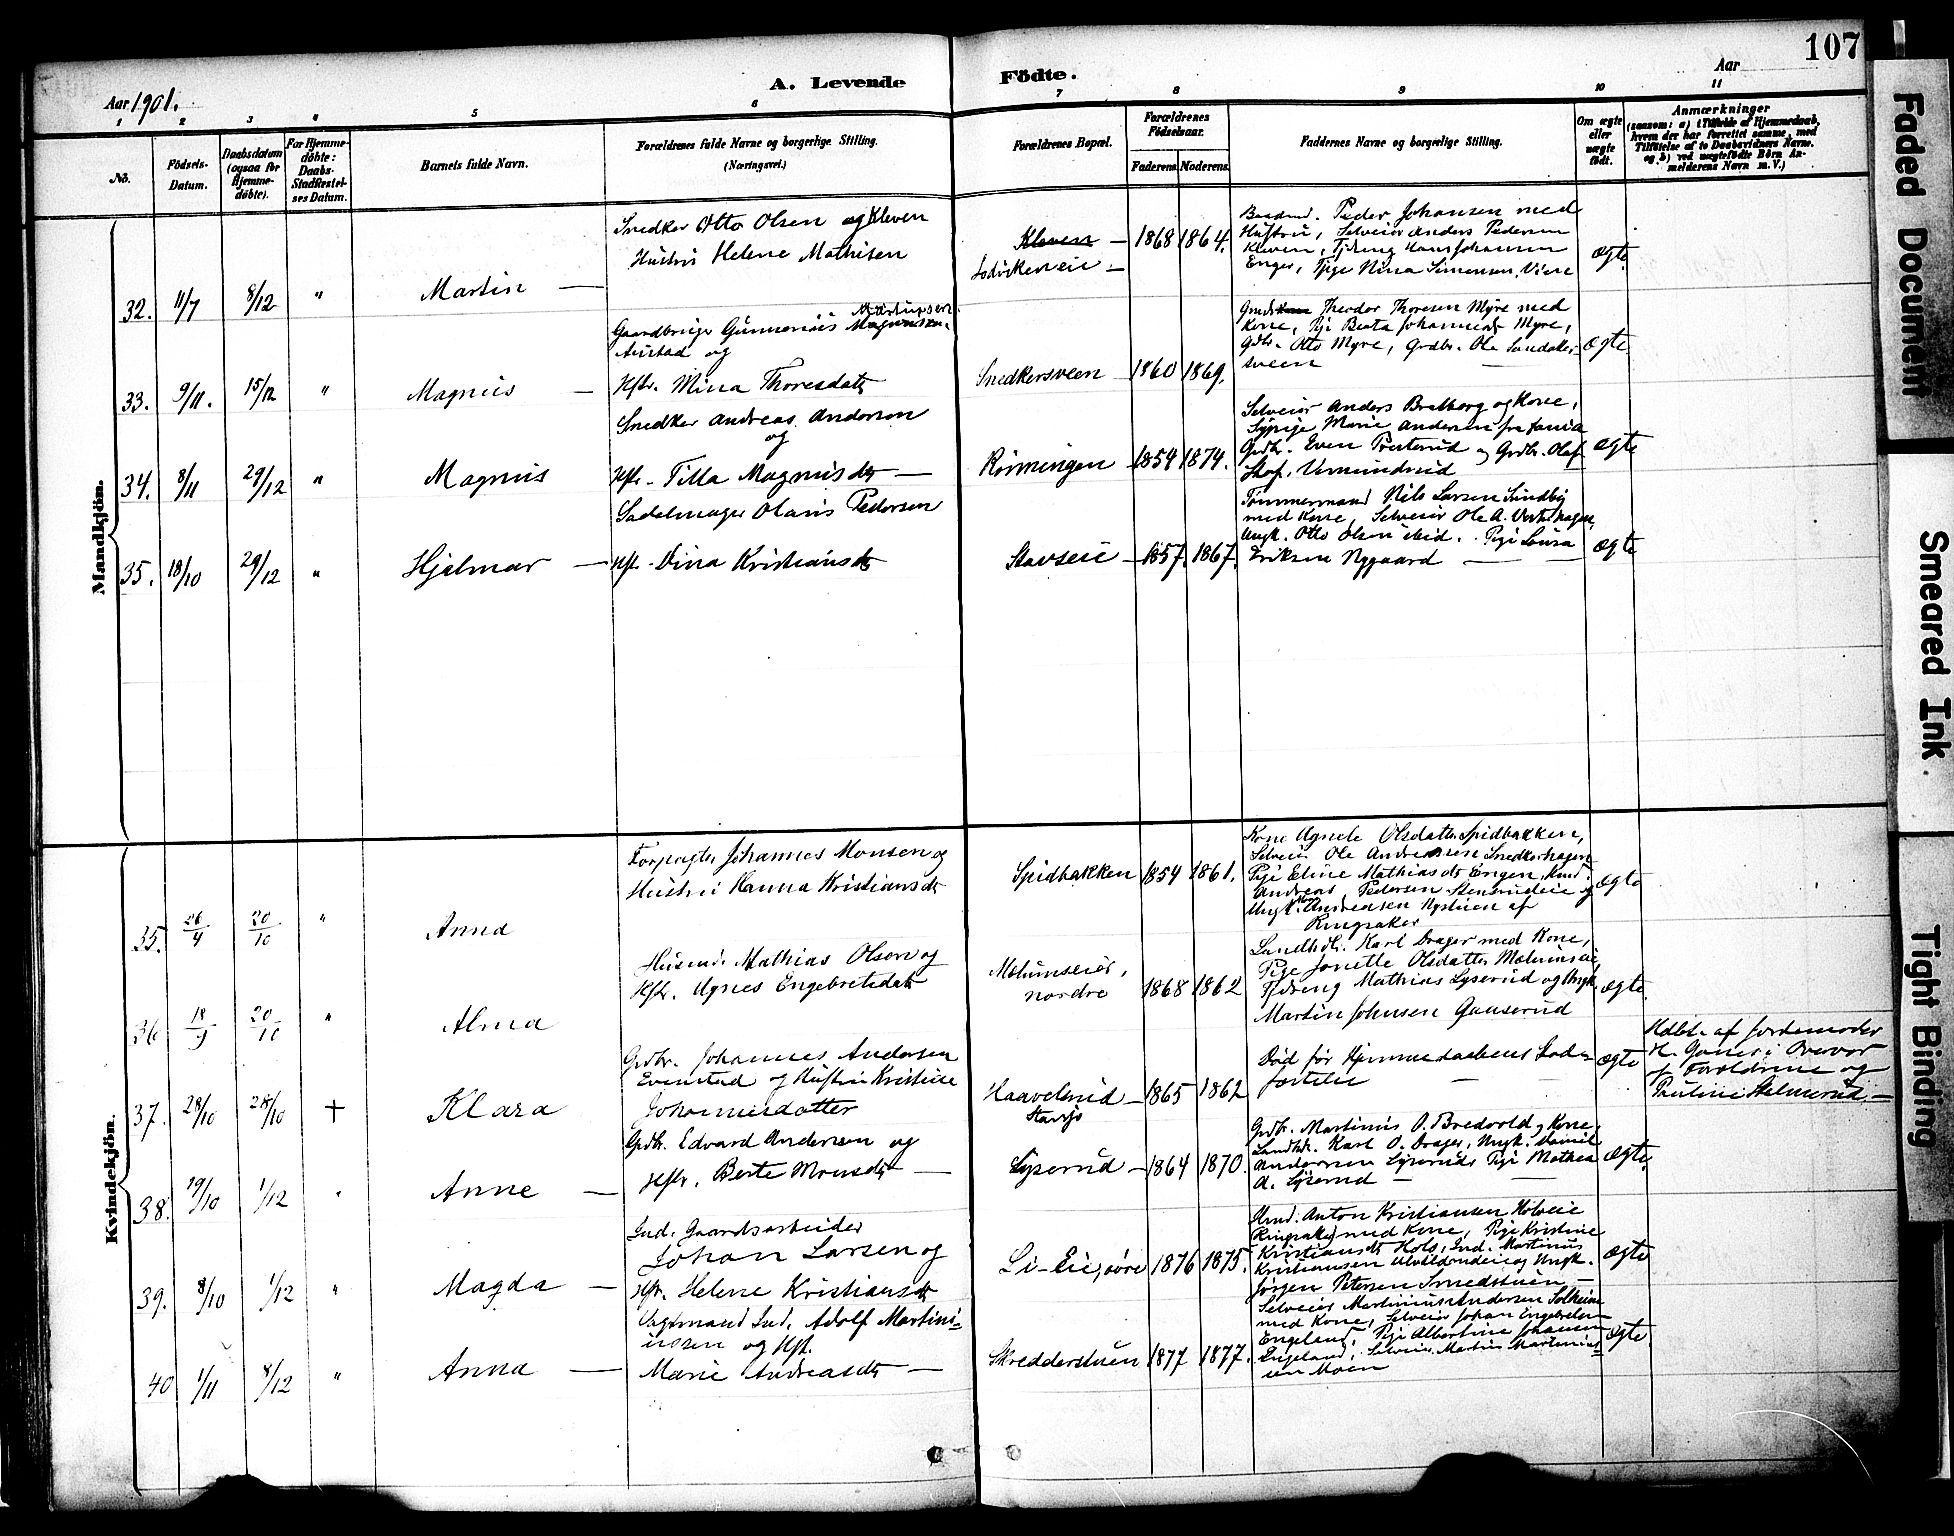 107
A. Levende Födte.
Aar 1901.
Aar
1 2 3 4 5 6 7 8 9 10 11
No.
Födsels-
Datum.
Daabsdatum
(ogsaa for
Hjemme-
döbte).
For Hjemme-
döbte:
Daabs-
Stadfæstel-
ses Datum.
Barnets fulde Navn.
Forældrenes fulde Navne og borgerlige Stilling.
(Næringsvei.)
Forældrenes Bopæl.
Forældrenes
Födselsaar.
Faderens. Moderens.
Faddernes Navne og borgerlige Stilling.
Om ægte
eller
uægte
födt.
Anmærkninger
(saasom: a) i Tilfælde af Hjemmedaab,
hvem der har forrettet samme, med
Tilföielse af to Daabsvidners Navne.
og b) ved uægtefödte Börn An-
melderens Navn m. V.)
Mandkjön.
32. 11/7 8/12 " Martin —
Snedker Otto Olsen og Kleven
Hustru Helene Mathisen
Kleven —
1868 1864.
Pedor Johansen med
Hustru, Selveier Anders Pedersen
Kleven, Hans Johansen
Enger, Pige Nina Simensen, Viene
ægte.
33. 9/11. 15/12 " Magnus —
Gaardbruger Gunnerius Magnussen
Austad og
Hstr. Mina Thoresdatr
Snedkersveen 1860 1869.
Theodor Thoresen Myre med
Kone, Pige Beata Johannesdr Myre,
Gdbr. Otto Myre, Grdbr. Ole Sandaker-
sveen —
ægte.
34. 8/11 29/12 " Magnus
Snedker Andreas Andersen
og
Hstr. Tilla Magnusdtr —
Rörmingen 1854 1874.
Selveier Anders Bratberg og Kone,
Sypige Marie Andersen fra
Grdbr. Even Prestrud og Grdbr. Olaf
ægte
35. 18/10 29/12 " Hjalmar —
Sadelmager Olaus Pedersen
Hst. Dina Kristiansdtr
Stavseie — 1857. 1867.
Tömmermand Nils Larsen Sundby
med Kone, Selveier Ole A.
Ungk. Otto Olsen ibid. Pige Lovisa
Eriksen Nygaard —
ægte
Kvindekjön.
35. 26/4 20/10 " Anna
Forpagter Johannes Monsen og
Hustru Hanna Kristiansdtr
Spidbakken 1854 1861.
Kone Agnete Olsdatter Spidbakken,
Selveier Ole Andreassen Snedkerhagen
Pige Eline Mathiasdtr Engen,
Andreas Pedersen Stensrudeie og
Ungk. Andreasen Nystuen af
Ringsaker
ægte
36 18/9 20/10 " Alma
Husmd. Mathias Olsen og
Hstr. Agnes Engebretsdatr
nordre 1868 1862
Landhdl. Karl Drager med Kone,
Pige Jonette Olsdatter
Mathias Lyserud og Ungk.
Martin Johnsen Gauserud
ægte.
37. 28/10 28/10 + Klara
Grdbr. Johannes Andersen
Evenstad og Hustru Kristine
Johannesdatter
Haavelsrud — 1865 1862
Död för Hjemmedaabens Stad-
fæstelse — —
ægte
Hdbt. af Jordemoder
H. i Overvær
af Forældrene og
Pauline —
38. 19/10 1/12 " Anne —
Grdbr. Edvard Andersen og
Hstr. Berte Monsdtr —
Lyserud — 1864 1870.
Grdbr. Martinus O. Bredvold og Kone,
Landhdl. Karl O. Drager, Ungk. Daniel
Andersen Lyserud, Pige Mathea
A. Lyserud — —
ægte.
39. 8/10 1/12 " Magda —
Ind. Gaardsarbeider
Johan Larsen og
Hstr. Helene Kristiansdtr
Li-Eie, söre 1876 1875.
Anton Kristiansen
Ringsaker med Kone, Pige Kristine
Kristiansdtr Hols, Ind. Martinus
Kristiansen og Ungk.
Jörgen Petersen Smedstuen —
ægte
40 1/11 8/12 " Anna —
Sagmand Ind. Adolf Martini-
ussen og Hst.
Marie Andreasdtr —
Skredderstuen 1877 1877.
Selveier Martinius Andersen Solheim
med Kone, Selveier Johan Engebretsen
Engeland, Pige Albertine Johansen
Engeland, Selveier Martin Martinius-
sen Moen
ægte.
Faded Document
Smeared Ink
Tight Binding